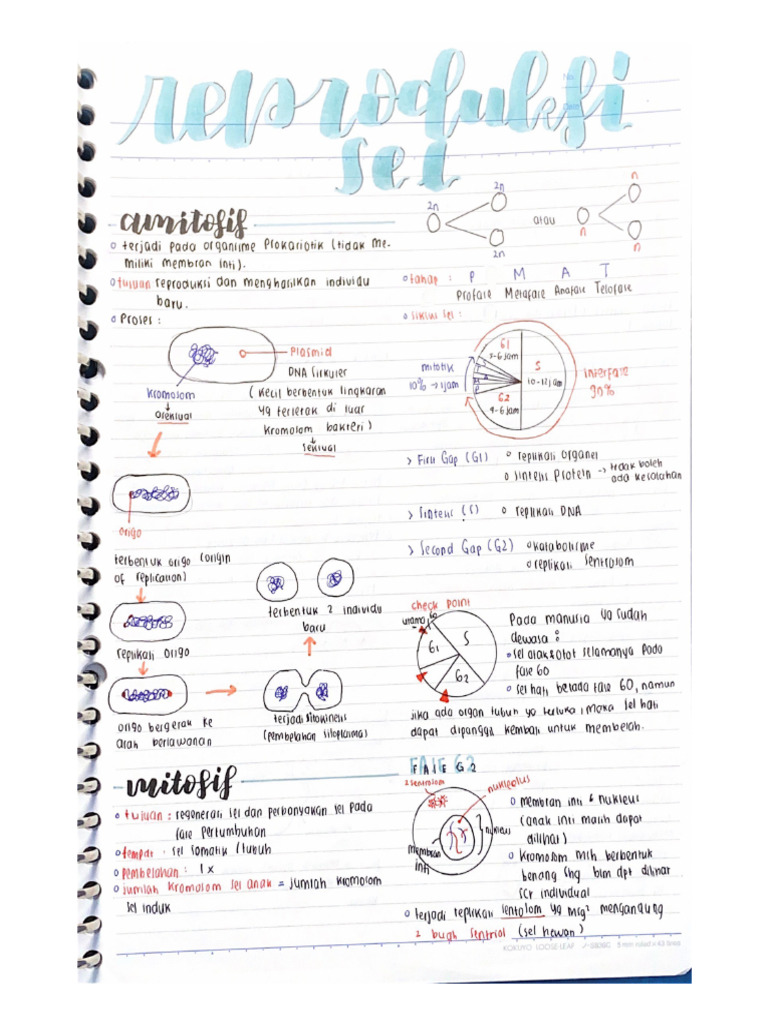 reproduksi
sel
amitosis
terjadi pada organisme prokariotik (tidak me-
miliki membran inti).
tujuan reproduksi dan menghasilkan individu
baru.
Proses :
Plasmid
DNA sirkuler
(kecil berbentuk lingkaran
yg terletak di luar
kromosom bakteri)
↓
seksual
kromosom
↓
aseksual
origo
terbentuk origo (origin
of replication)
replikasi origo
origo bergerak ke
arah berlawanan
terjadi sitokinesis
(pembelahan sitoplasma)
terbentuk 2 individu
baru
mitosis
tujuan : regenerasi sel dan perbanyakan sel pada
fase pertumbuhan
tempat : sel somatik / tubuh
pembelahan : 1x
jumlah kromosom sel anak = jumlah kromosom
sel induk
2n
2n
2n
atau
n
n
n
tahap : P M A T
Profase Metafase Anafase Telofase
siklus sel :
mitotik
10% → 1jam
G1
5-6 jam
S
10-12 jam
G2
4-6 jam
T
A
M
P
interfase
90%
> First Gap (G1) replikasi organel
sintesis protein → tidak boleh
ada kesalahan
> Sintesis (S) replikasi DNA
> Second Gap (G2) katabolisme
replikasi sentrosom
check point
utama G0
G1
S
G2
Pada manusia yg sudah
dewasa :
sel otak & otot selamanya pada
fase G0
sel hati berada fase G0, namun
jika ada organ tubuh yg terluka, maka sel hati
dapat dipanggil kembali untuk membelah.
FASE G2
2 sentrosom
nukleolus
nukleus
membran
inti
membran inti & nukleus
(anak inti masih dapat
dilihat)
kromosom msh berbentuk
benang shg blm dpt dilihat
scr individual
terjadi replikasi sentrosom yg msg² mengandung
2 buah sentriol (sel hewan)
KOKUYO LOOSE-LEAF